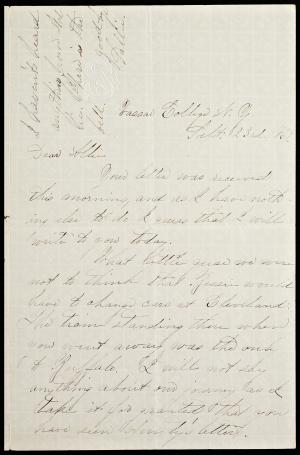 Vassar College N. Y.
Sept. 23d
Dear Ollie
Your letter was received
this morning, and as I have noth-
ing else to do I guess that I will
write to you today.
What little sense we were
not to think that Jessie would
have to change cars at Cleveland.
The train standing there when
you went away was the one
to Buffalo. I will not say
anything about our journey as I
take it for granted that you
have seen letters.
I haven't heard
anything from the
is the